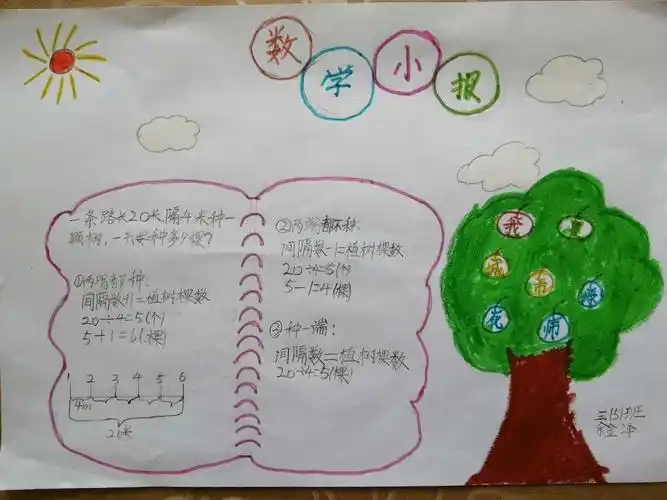 数学小报
一条路长20米,隔4米种一
颗树,一共要种多少棵?
①两端都种:
间隔数+1=植树棵数
20÷4=5(个)
5+1=6(棵)
1 2 3 4 5 6
4m
20米
②两端都不种:
间隔数-1=植树棵数
20÷4=5(个)
5-1=4(棵)
③种一端:
间隔数=植树棵数
20÷4=5(棵)
我 是
花 师
三(5)班